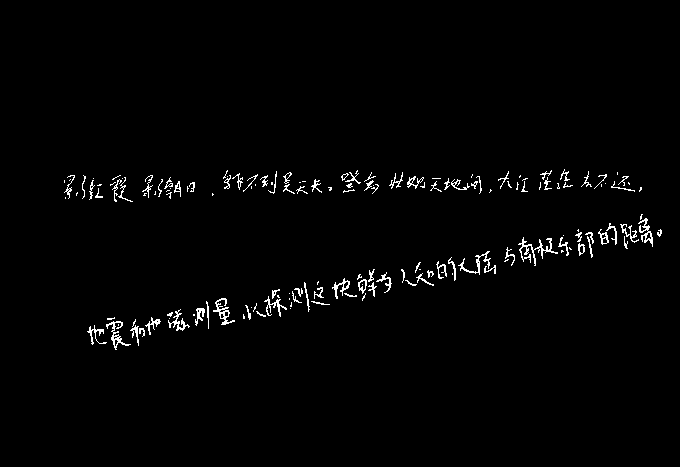 影红霞影朝日,鸟飞不到吴天长。登高壮观天地间,大江茫茫去不还,
地震和地磁测量,以探测这块鲜为人知的大陆与南极东部的距离。